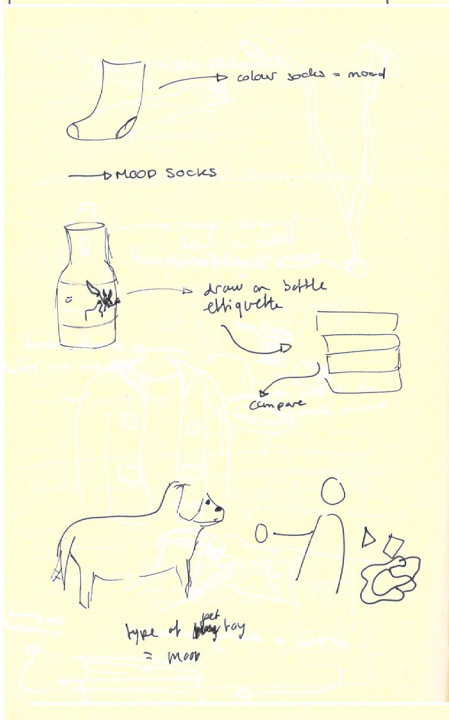 colour socks = mood
MOOD SOCKS
draw on bottle
ettiquette
compare
type of pet toy
= mood